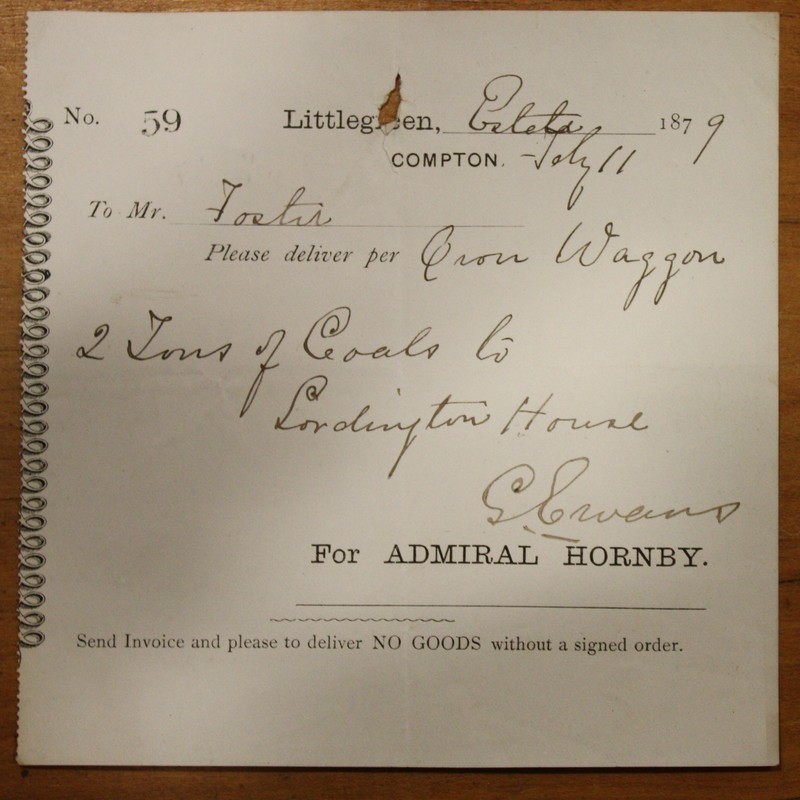 No. 59 Littlegreen, Estate 1879
COMPTON. July 11
To Mr. Foster
Please deliver per Iron Waggon
2 Tons of Coals to
Lordington House
G. Evans
For ADMIRAL HORNBY.
Send Invoice and please to deliver NO GOODS without a signed order.